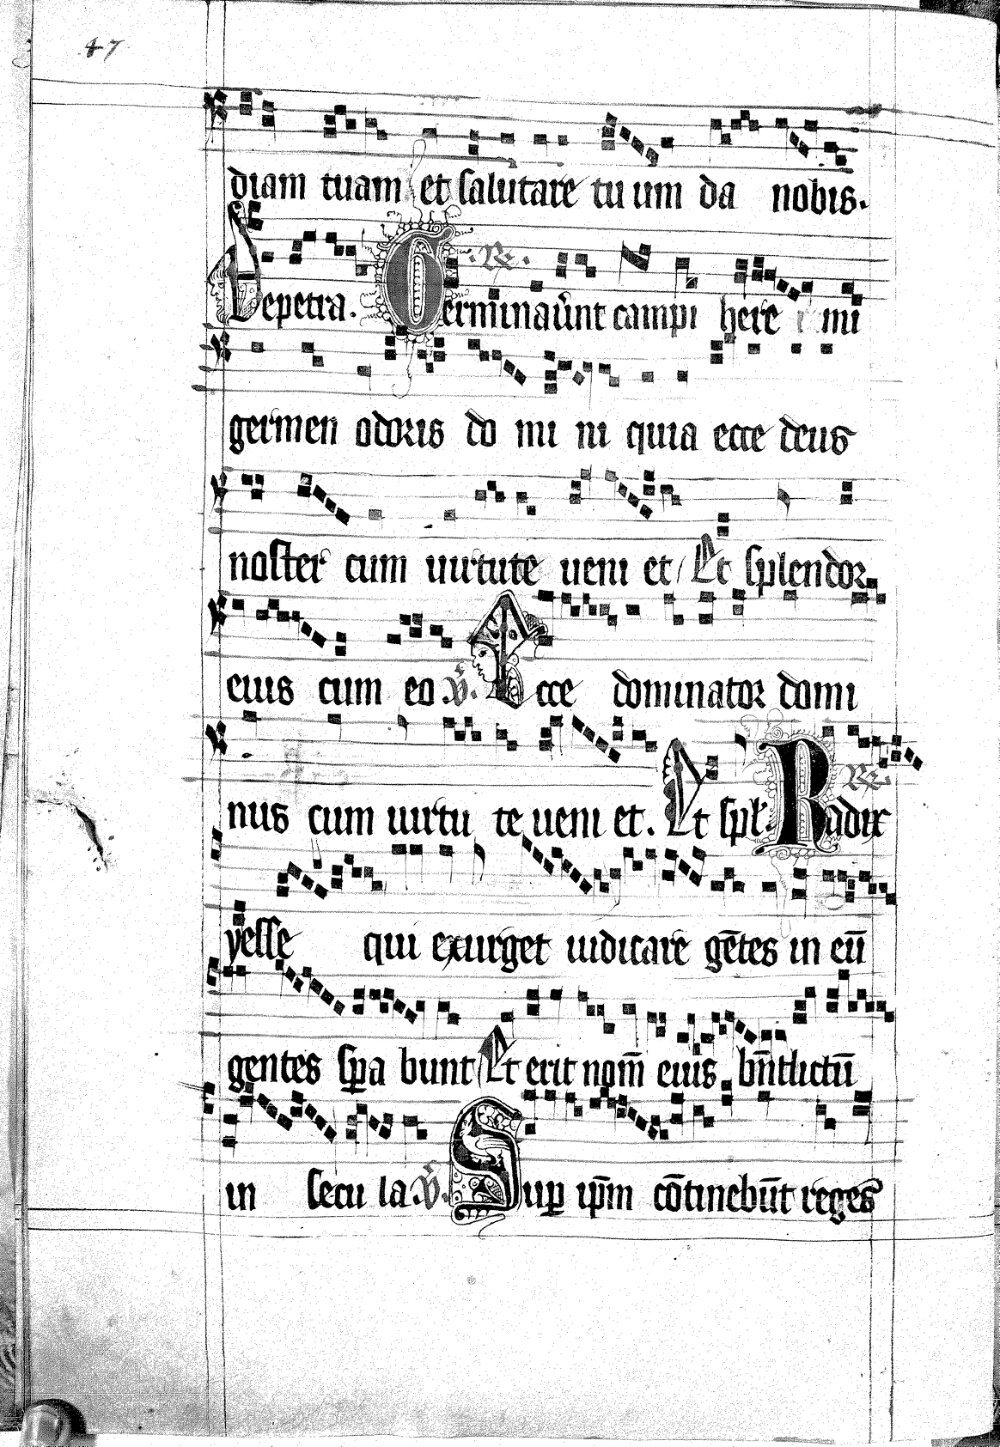 47
diam tuam et salutare tuum da nobis.
Depetra. R. Germinaũnt campi heremi
germen odoris domini quia ecce deus
noster cum uirtute ueni et Et splendor
eius cum eo V. Ecce dominator domi
nus cum uirtute ueni et. Et spl. R. Radix
yesse qui exurget iudicare gẽtes in eũ
gentes spabunt Et erit nom̃ eius bñdictũ
in secula V. Sup ip̃m cõtinebũt reges